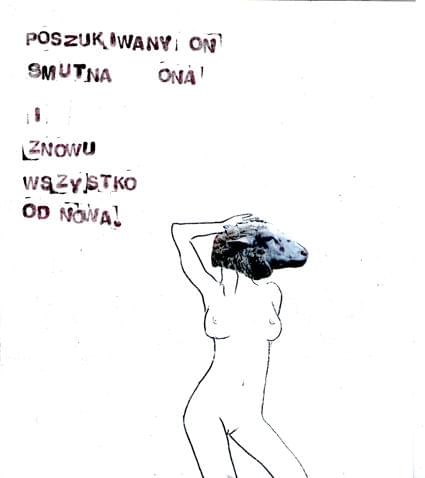 POSZUKIWANY ON
SMUTNA ONA
I
ZNOWU
WSZYSTKO
OD NOWA